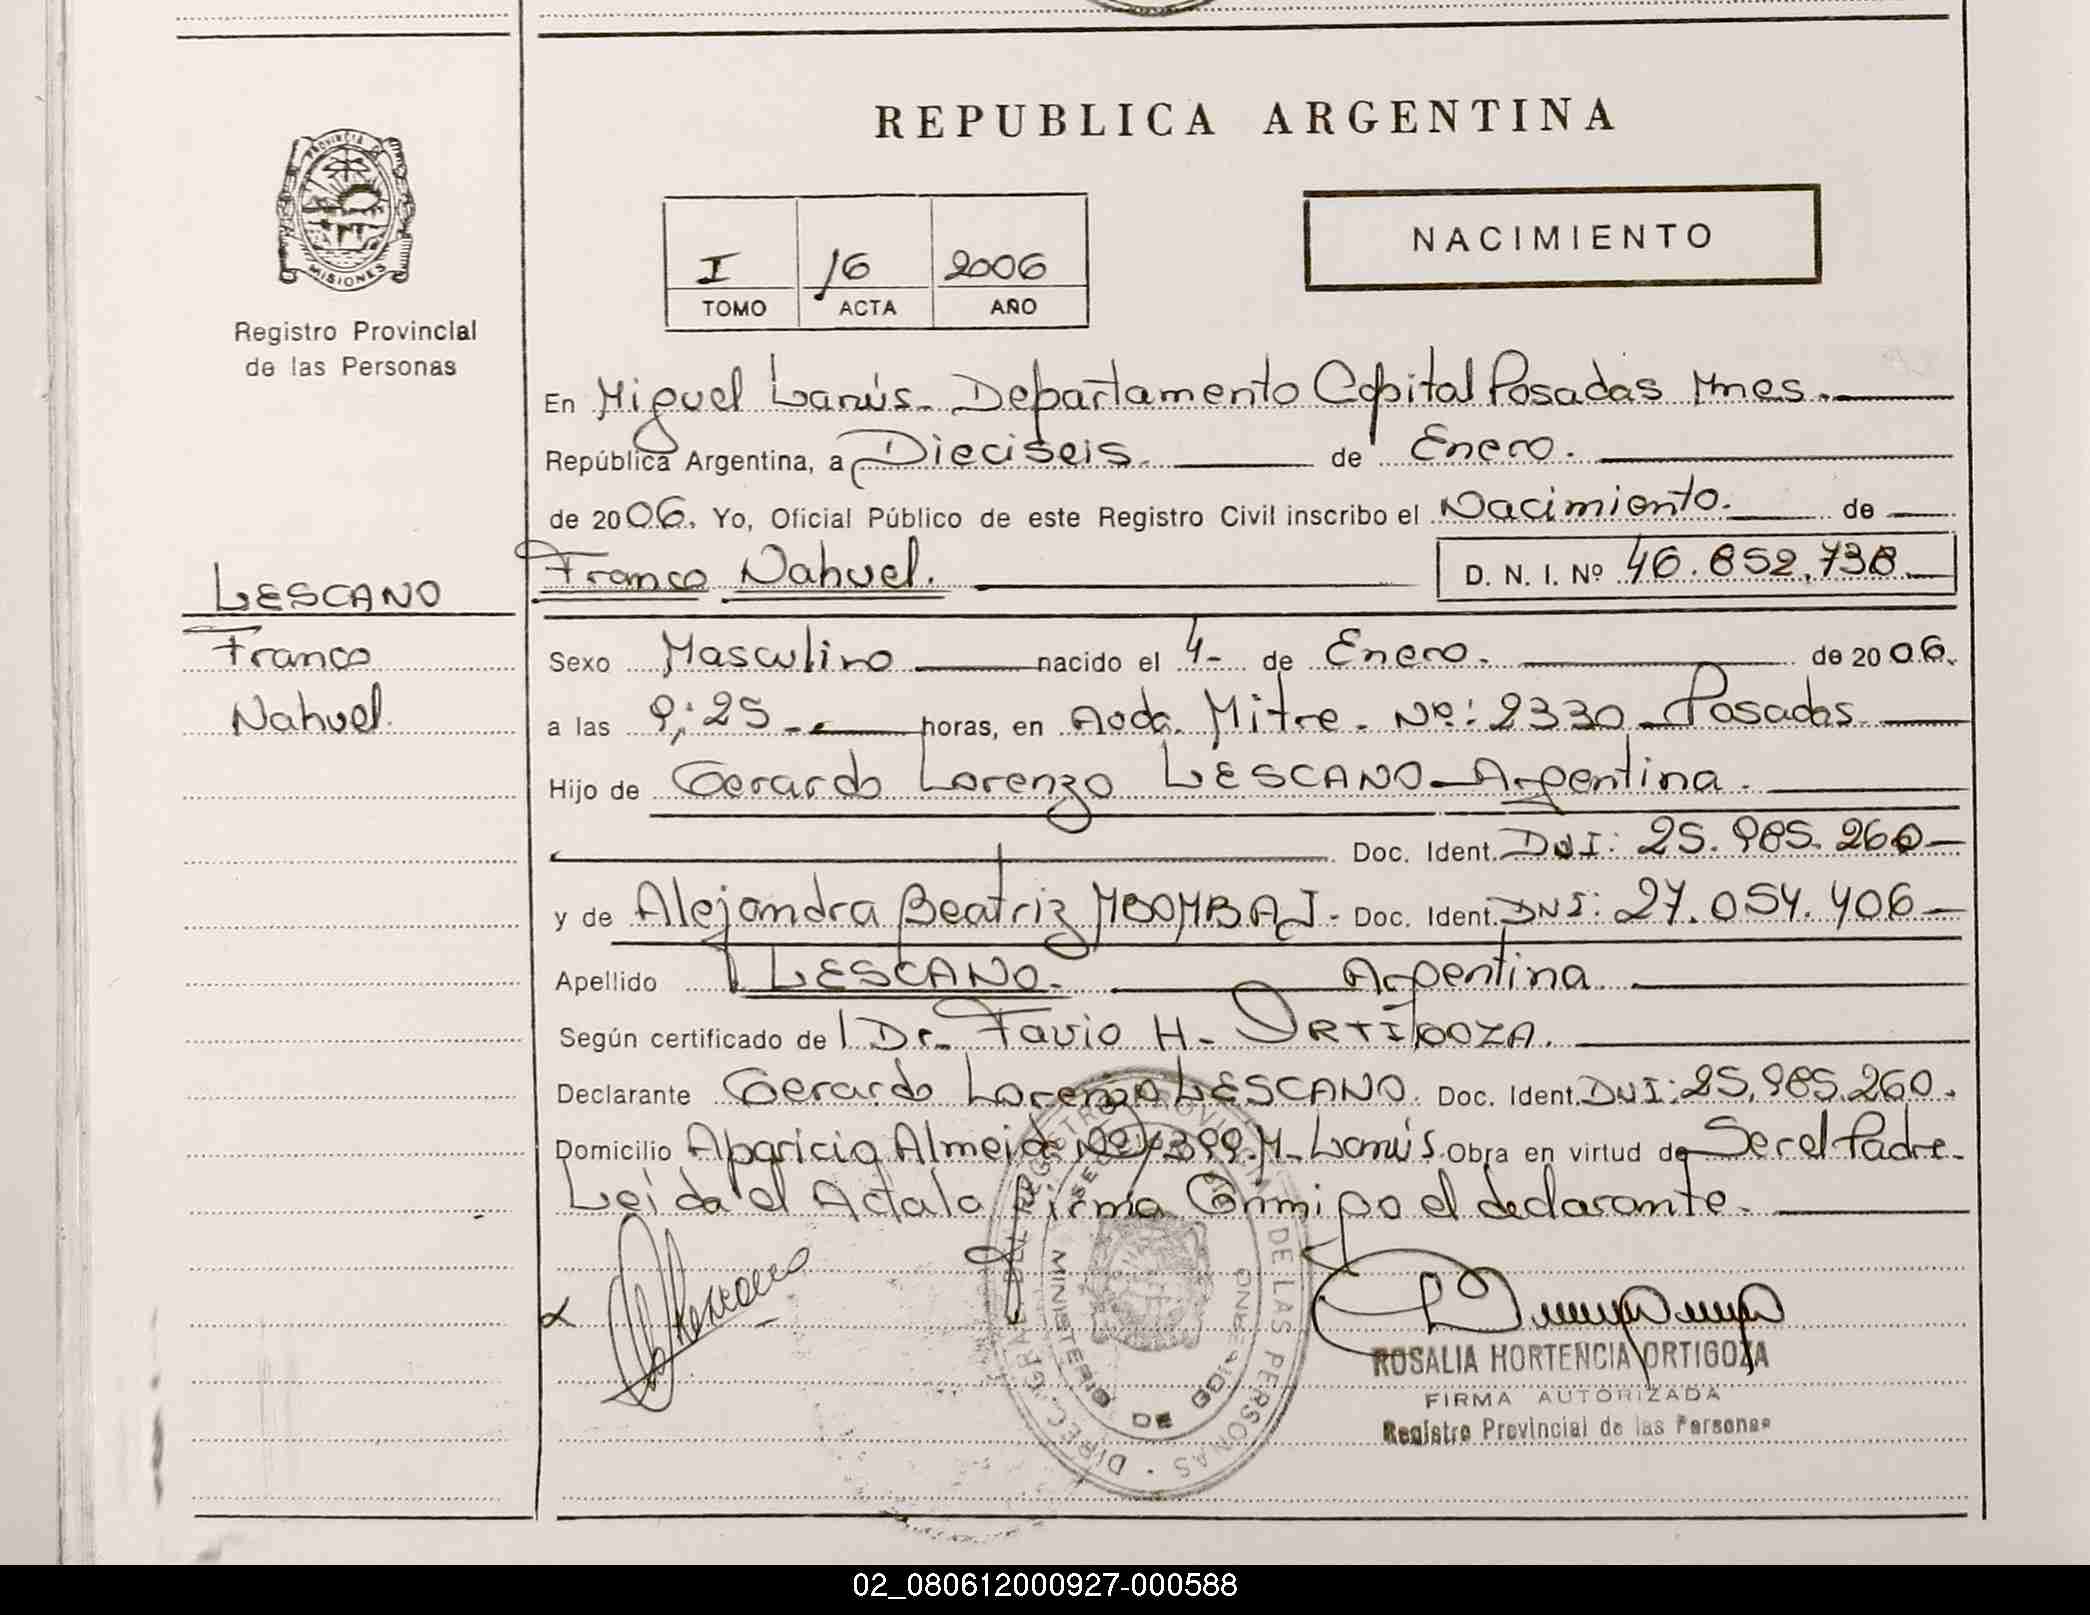 REPUBLICA ARGENTINA
PROVINCIA
MISIONES
Registro Provincial
de las Personas
NACIMIENTO
I 16 2006
TOMO ACTA AÑO
En Miguel Lanús. Departamento Capital Posadas Mnes.
República Argentina, a Dieciseis. de Enero.
de 2006. Yo, Oficial Público de este Registro Civil inscribo el Nacimiento. de
LESCANO
Franco
Nahuel.
Franco Nahuel. D. N. I. Nº 46.852.738
Sexo Masculino nacido el 4- de Enero. de 2006.
a las 9:25 horas, en Avda. Mitre. Nº: 2330 Posadas
Hijo de Gerardo Lorenzo LESCANO Argentina.
Doc. Ident. DNI: 25.985.260
y de Alejandra Beatriz MBOMBAJ- Doc. Ident. DNI: 27.054.406
Apellido LESCANO. Argentina
Según certificado de Dr. Favio H. ORTIGOZA.
Declarante Gerardo Lorenzo LESCANO. Doc. Ident. DNI: 25.985.260.
Domicilio Aparicio Almeida Nº 4399. M. Lanús. Obra en virtud de Ser el Padre.
Leída el Acta la firma Conmigo el declarante.
DIREC. GRAL. DEL REGISTRO PROVINCIAL DE LAS PERSONAS
MINISTERIO DE GOBIERNO
ROSALIA HORTENCIA ORTIGOZA
FIRMA AUTORIZADA
Registro Provincial de las Personas
02_080612000927-000588